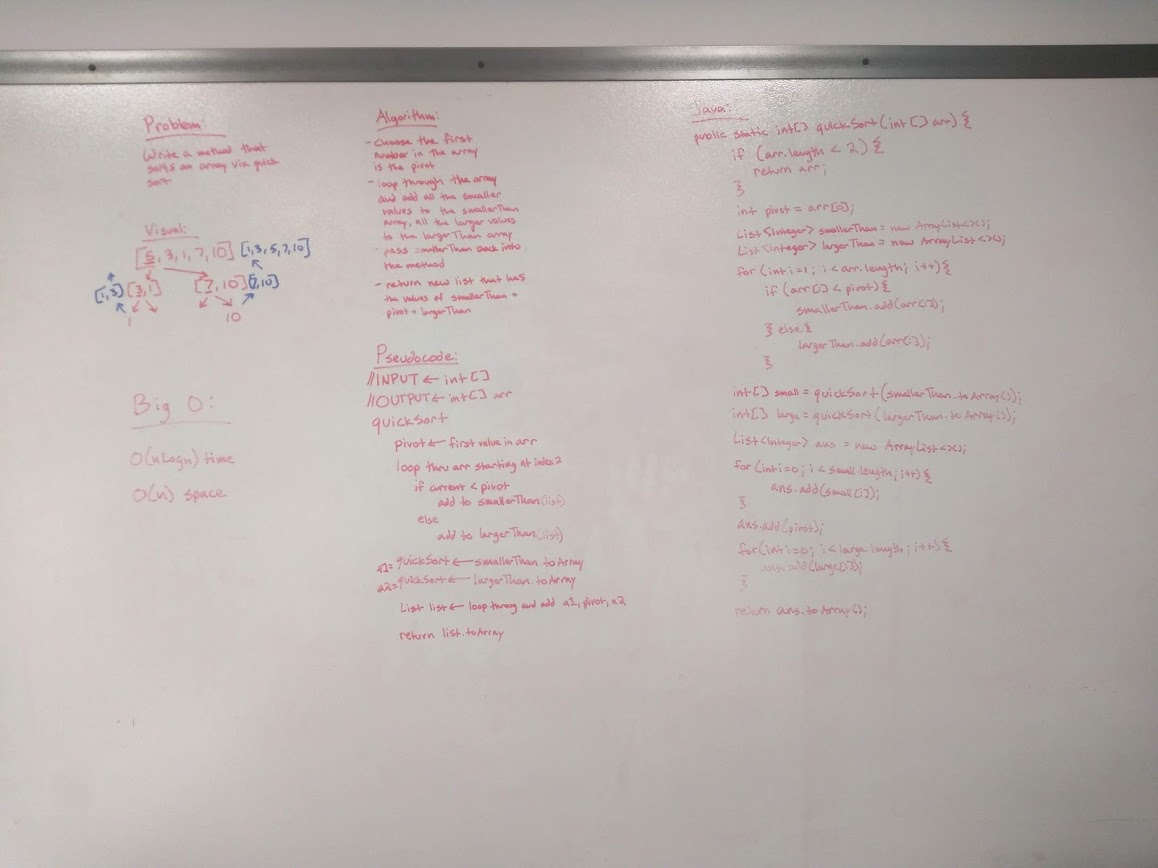 Problem:
Write a method that
sorts an array via quick
sort
Visual:
[5, 3, 1, 7, 10] [1, 3, 5, 7, 10]
[1, 3] [3, 1] [7, 10] [7, 10]
1 10
Big O:
O(nlogn) time
O(n) space
Algorithm:
- choose the first
number in the array
is the pivot
- loop through the array
and add all the smaller
values to the smallerThan
array, all the larger values
to the largerThan array
- pass smallerThan back into
the method
- return new list that has
the values of smallerThan +
pivot + largerThan
Pseudocode:
//INPUT ← int[]
//OUTPUT ← int[] arr
quickSort
pivot ← first value in arr
loop thru arr starting at index 2
if current < pivot
add to smallerThan (list)
else
add to largerThan (list)
a1 = quickSort ← smallerThan.toArray
a2 = quickSort ← largerThan.toArray
List list ← loop throug and add a1, pivot, a2
return list.toArray
Java:
public static int[] quickSort(int[] arr) {
if (arr.length < 2) {
return arr;
}
int pivot = arr[0];
List<Integer> smallerThan = new ArrayList<>();
List<Integer> largerThan = new ArrayList<>();
for (int i=1; i < arr.length; i++) {
if (arr[i] < pivot) {
smallerThan.add(arr[i]);
} else {
largerThan.add(arr[i]);
}
int[] small = quickSort(smallerThan.toArray());
int[] large = quickSort(largerThan.toArray());
List<Integer> ans = new ArrayList<>();
for (int i=0; i < small.length; i++) {
ans.add(small[i]);
}
ans.add(pivot);
for (int i=0; i < large.length; i++) {
ans.add(large[i]);
}
return ans.toArray();